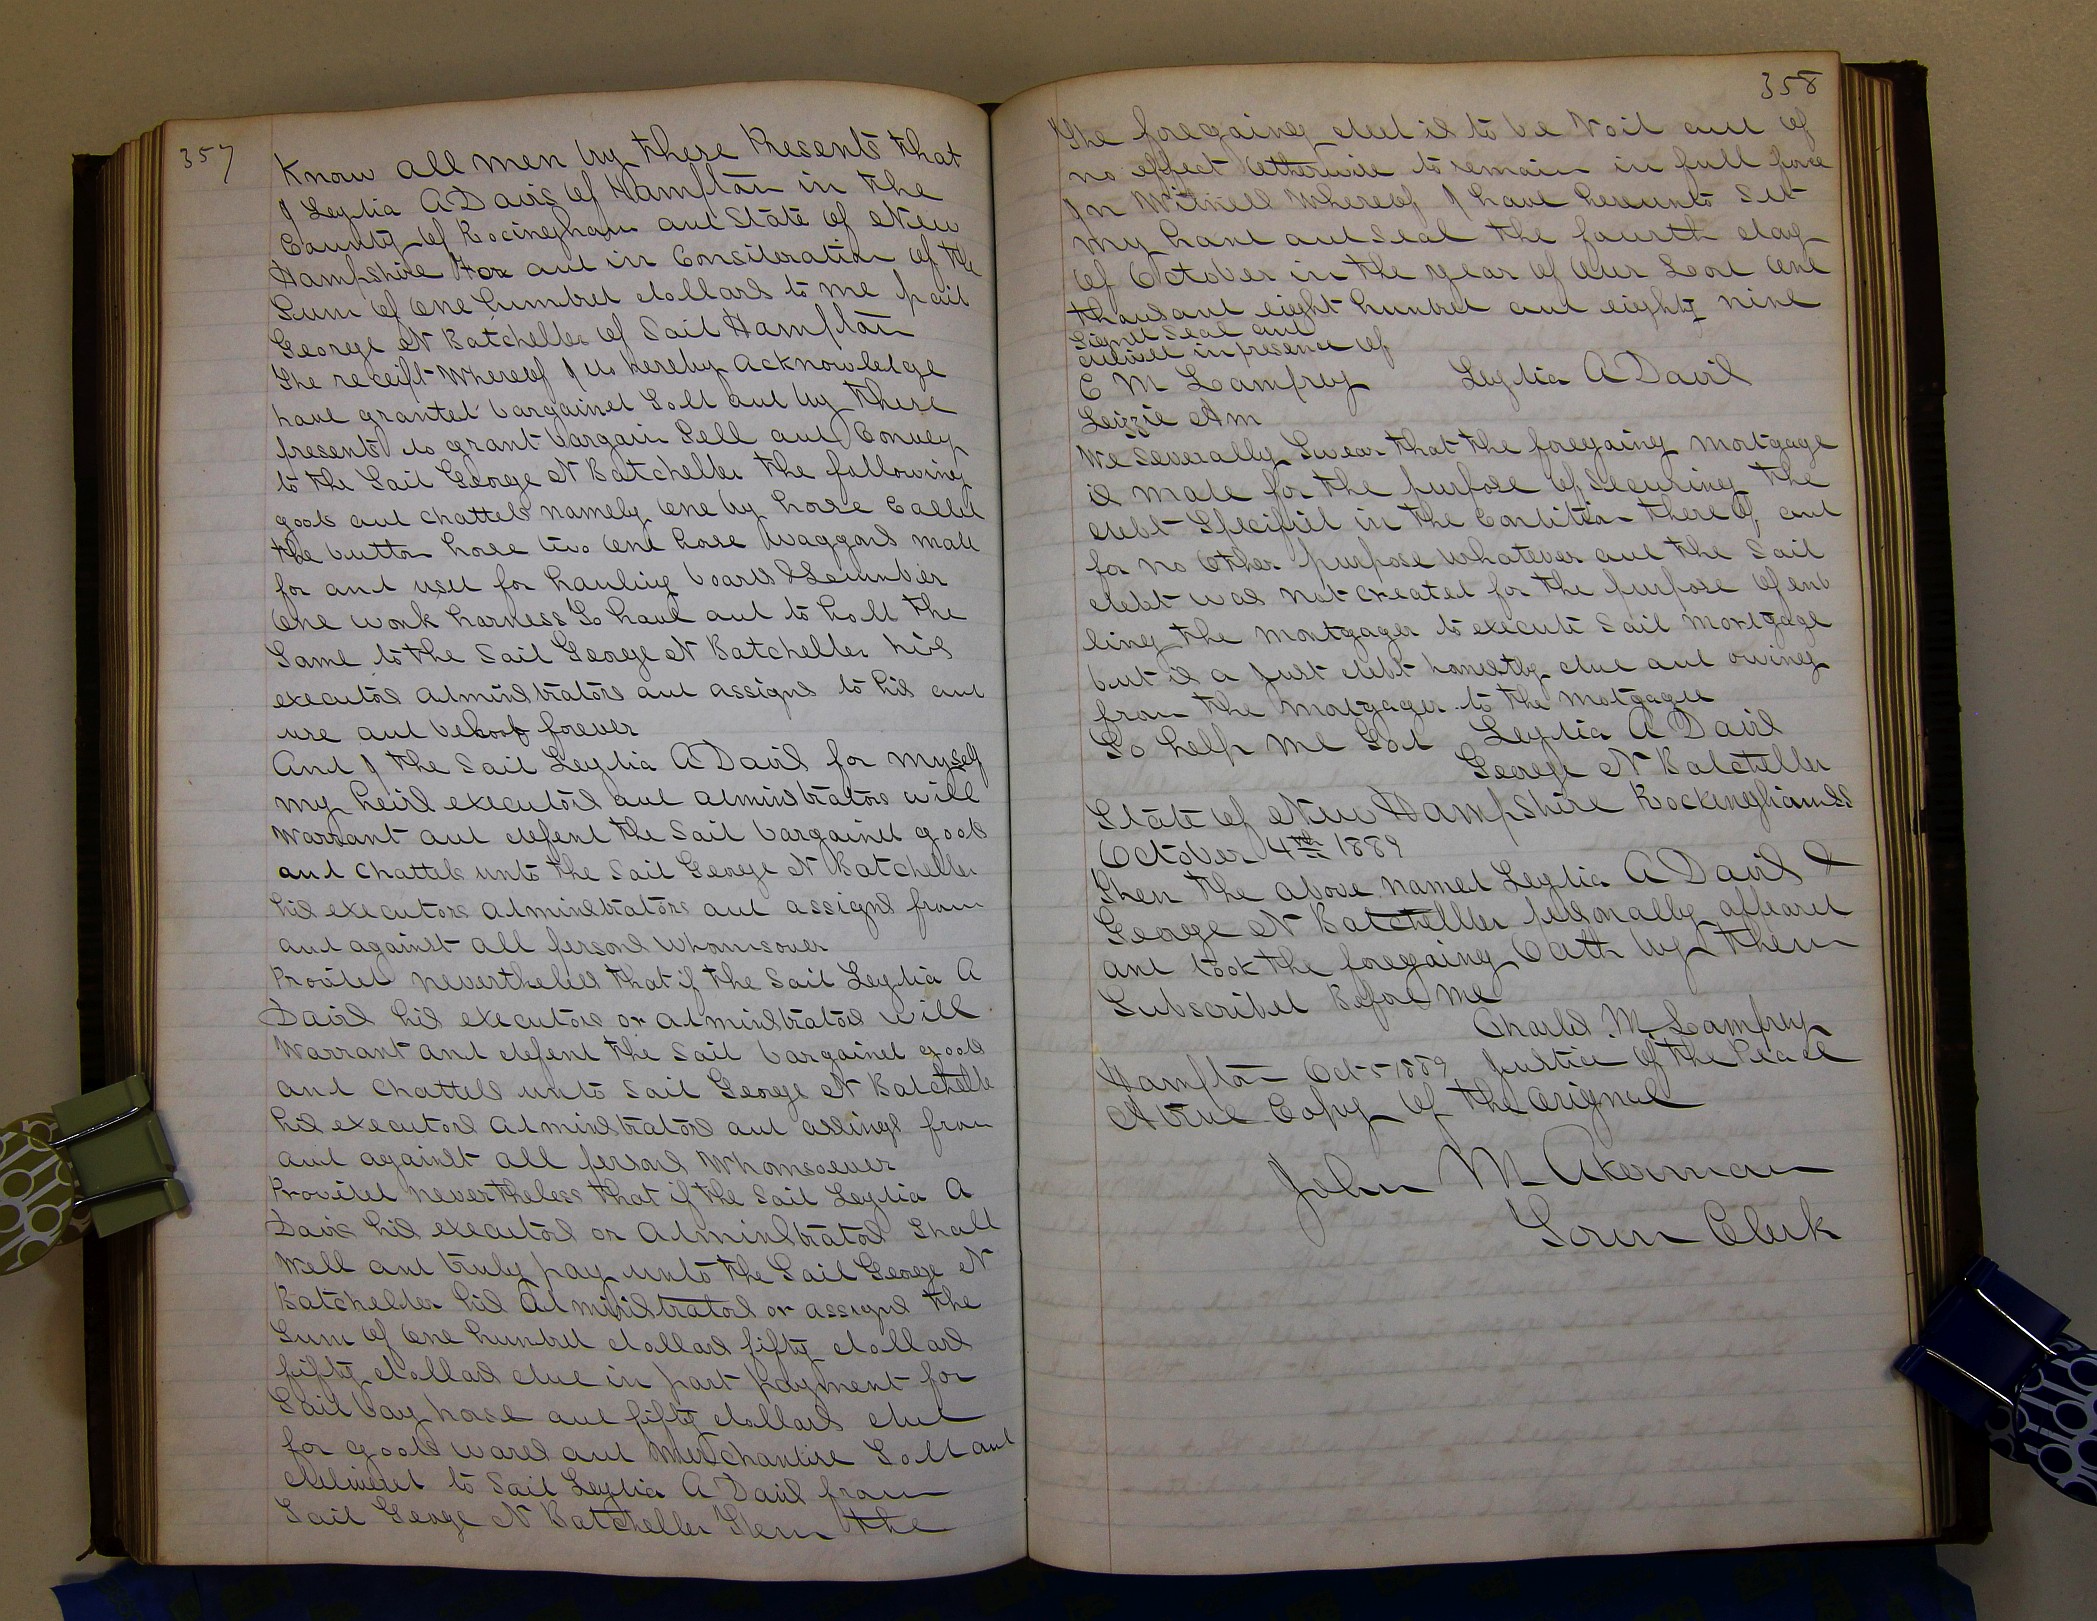 357
Know all men by these Presents that
I Leydia A Davis of Hampton in the
County of Rocingham and State of New
Hampshire For and in Consideration of the
Sum of One hundred dollars to me paid
George N Batcheller of Said Hampton
The receipt Whereof I do hereby Acknowledge
have granted bargained Sold and by these
presents do grant bargain Sell and Convey
to the Said George N Batcheller the following
goods and chattels namely One by horse Called
the button horse two One horse Waggons made
for and used for hauling boards & Leumber
One work harness To have and to hold the
Same to the Said George N Batcheller his
executors administrators and assigns to his and
use and behoof forever
And I the Said Leydia A Davis for myself
my heirs executors and administrators will
Warrant and defend the Said bargained goods
and Chattels unto the Said George N Batcheller
his executors administrators and assigns from
and against all persons Whomsover
Provided nevertheless that if the Said Leydia A
Davis his executors or administrators will
Warrant and defend the Said bargained goods
and Chattels unto Said George N Batchelle
his executors administrators and assings from
and against all persons Whomsoever
Provided nevertheless that if the Said Leydia A
Davis his executors or administrators Shall
Well and truly pay unto the Said George N
Batchelder his Administrators or assigns the
Sum of One hundred dollars fifty dollars
fifty dollars due in part payment for
Said bay horse and fifty dollars due
for goods wares and Merchandise Sold and
delivered to Said Leydia A Davis from
Said George N Batcheller Then the
358
The foregoing deed is to be Void and of
no effect Otherwise to remain in full force
In Witness Whereof I have hereunto Set
my hand and Seal the fourth day
of October in the year of Our Lord One
thousand eight hundred and eighty nine
Signed Seal and
delived in presence of
C M Lamprey Leydia A Davis
Leizzie Am
We Severally Swear that the foregoing mortgage
is made for the purpose of Securing the
debt Specified in the Condition there of, and
for no Other purpose Whatever and the Said
debt was not created for the purpose of enb
ling the mortgager to execute Said mortgage
but is a just debt honestly due and owing
from the mortgager to the motgagee
So help me God Leydia A Davis
George N Batcheller
State of New Hampshire Rockinghamss
October 4th 1889
Then the above named Leydia A Davis &
George N Batcheller personally appeared
and took the foregoing Oath by them
Subscribed Before me
Charles M Lamprey
Hampton Oct 5 1889 Justice of the Peace
A true Copy of the Orignal
John M Akerman
Town Clerk